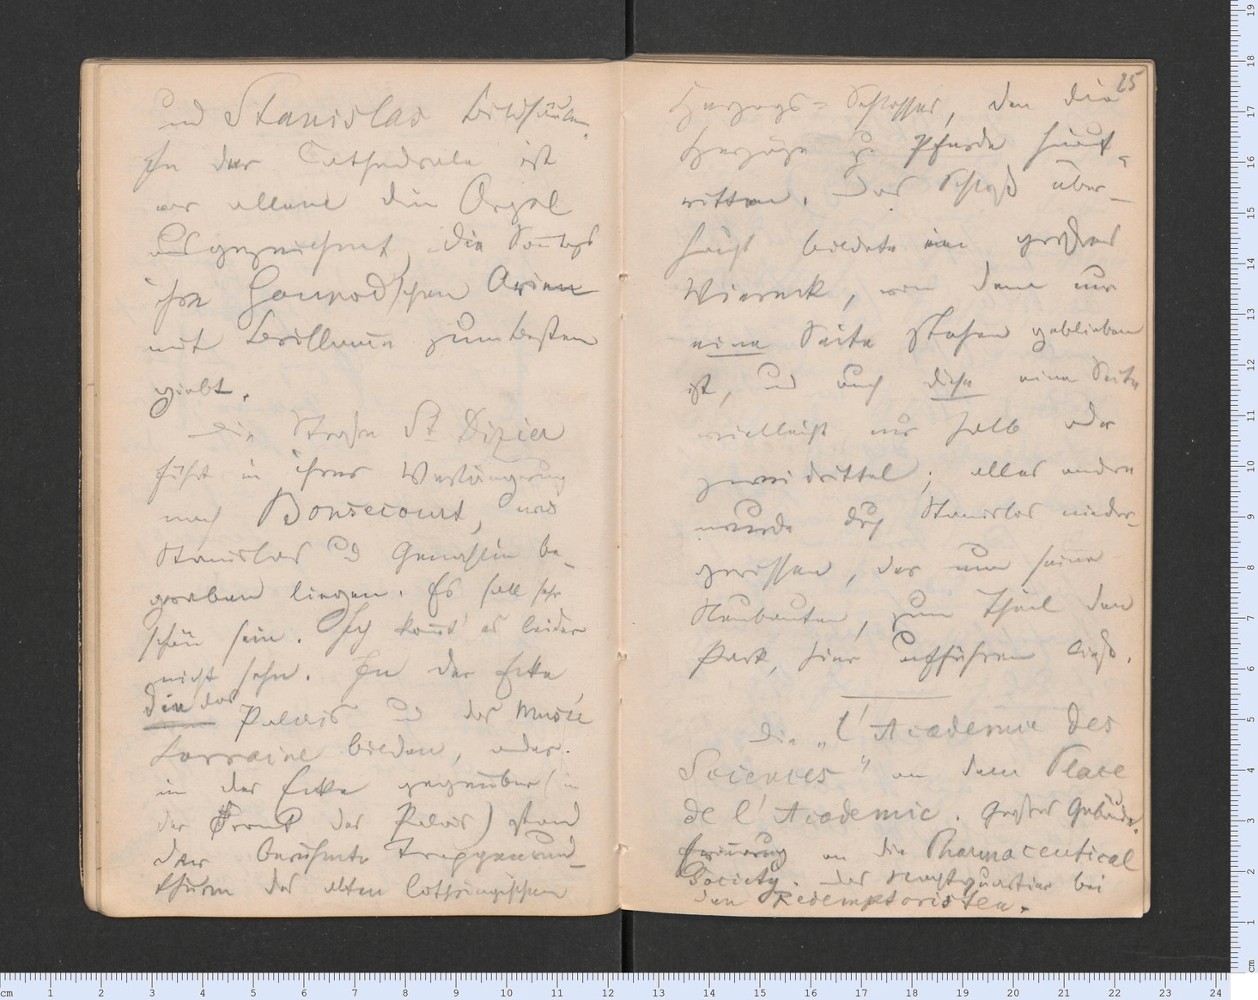 und Stanislas Bildsäulen.
In der Cathedrale ist
vor allem die Orgel
ausgezeichnet, die Sontags
ihre Gounod'schen Arien
mit Brillanz zum besten
giebt.
Die Straße St Dizier
führt in ihrer Verlängerung
nach Bonsecourt, wo
Stanislas und Gemahlin be-
graben liegen. Es soll sehr
schön sein. Ich konnt' es leider
nicht sehn. In der Ecke,
die das
Palais und das Musée
Lorraine bilden, oder
in der Ecke gegenüber (in
der Front des Palais) stand
der berühmte Treppenrund-
thurm des alten lothringischen
25
Herzogs-Schlosses, den die
Herzöge zu Pferde hinauf-
ritten. Das Schloß über-
haupt bildete ein großes
Viereck, von dem nur
eine Seite stehen geblieben
ist, und auch diese eine Seite
vielleicht nur halb oder
zweidrittel; alles andre
wurde durch Stanislas nieder-
gerissen, der nun seine
Neubauten, zum Theil den
Park, hier aufführen ließ.
Die „l'Academie des
Sciences" an dem Place
de l'Academie. Großes Gebäude.
Erinnerung an die Pharmaceutical
Society. Das Nachtquartier bei
den Redemptoristen.